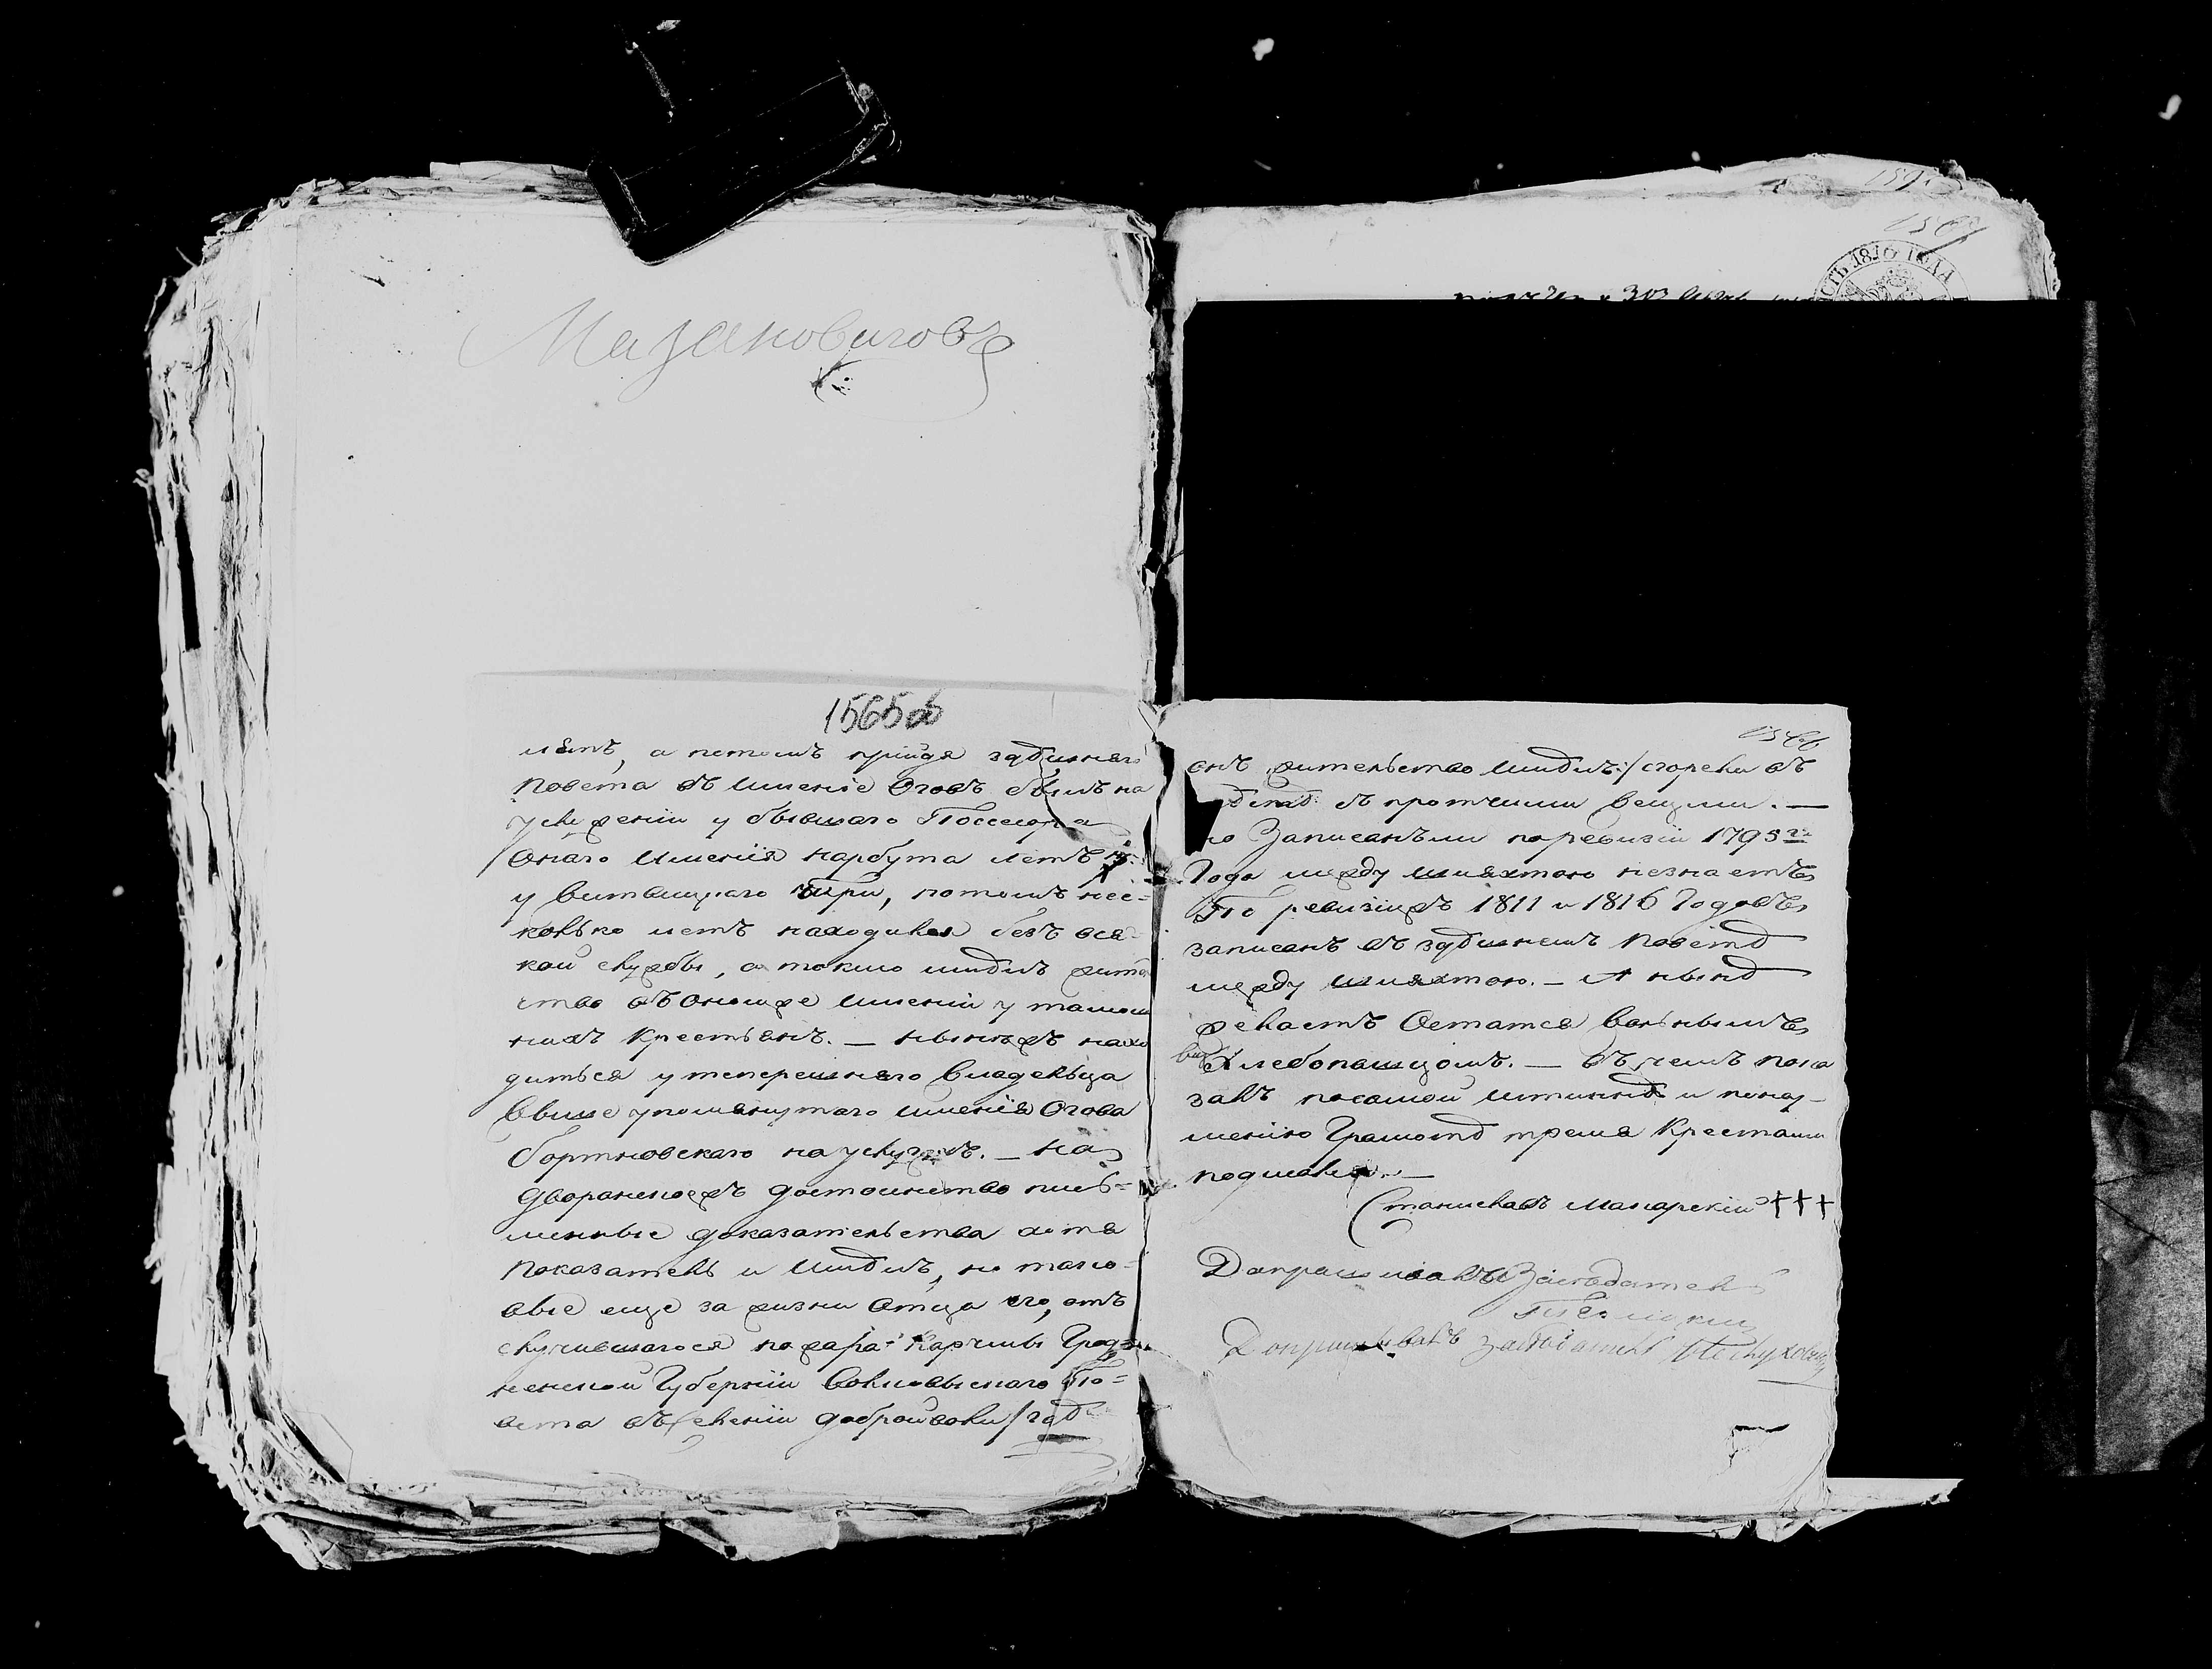 Мазановичовъ
1565 об
летъ, а потомъ прийдя здѣшняго
повета въ имение Огов былъ на
услужении у бывшаго Поссесора
Онаго имения Нарбута летъ
у три, потомъ нес=
колько летъ находился безъ вся=
кой службы, а токмо имѣлъ жител
ство въ ономже имении у тамош
нихъ крестьянъ. — нынѣжъ нахо
диться у теперешняго владельца
выше упомянутаго имения Огова
Бортновскаго на услугахъ. — На
дворянскоежъ достоинство пись=
менные доказательства хотя
показатель и имѣлъ, но тако=
вые еще за жизни отца его, отъ
случившагося пожара Корчмы Грод=
ненской Губернии Волковыскаго По=
вета въ селении Добройволи /гдѣ
1566
онъ жительство имѣлъ:/ сгорели въ
съ протчими вещми. —
Записанъли по ревизии 1795го
Года между шляхтою незнаетъ
По ревизияжъ 1811 и 1816 Годовъ
записанъ въ здѣшнемъ поветѣ
между шляхтою. — А нынѣ
желаетъ остатся вольнымъ
хлебопашцомъ. — въ чемъ пока
залъ посамой истиннѣ и неиу=
мению Грамотѣ тремя Крестами
подписался. —
Станиславъ Мацарский +++
Допрашивалъ Заседатель
Допрашивалъ Заседатель